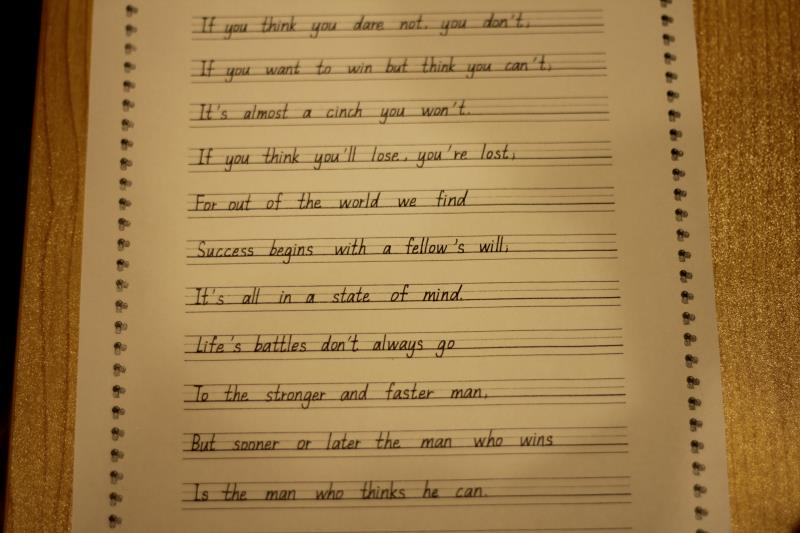 If you think you dare not, you don't;
If you want to win but think you can't;
It's almost a cinch you won't.
If you think you'll lose, you're lost;
For out of the world we find
Success begins with a fellow's will;
It's all in a state of mind.
Life's battles don't always go
To the stronger and faster man,
But sooner or later the man who wins
Is the man who thinks he can.